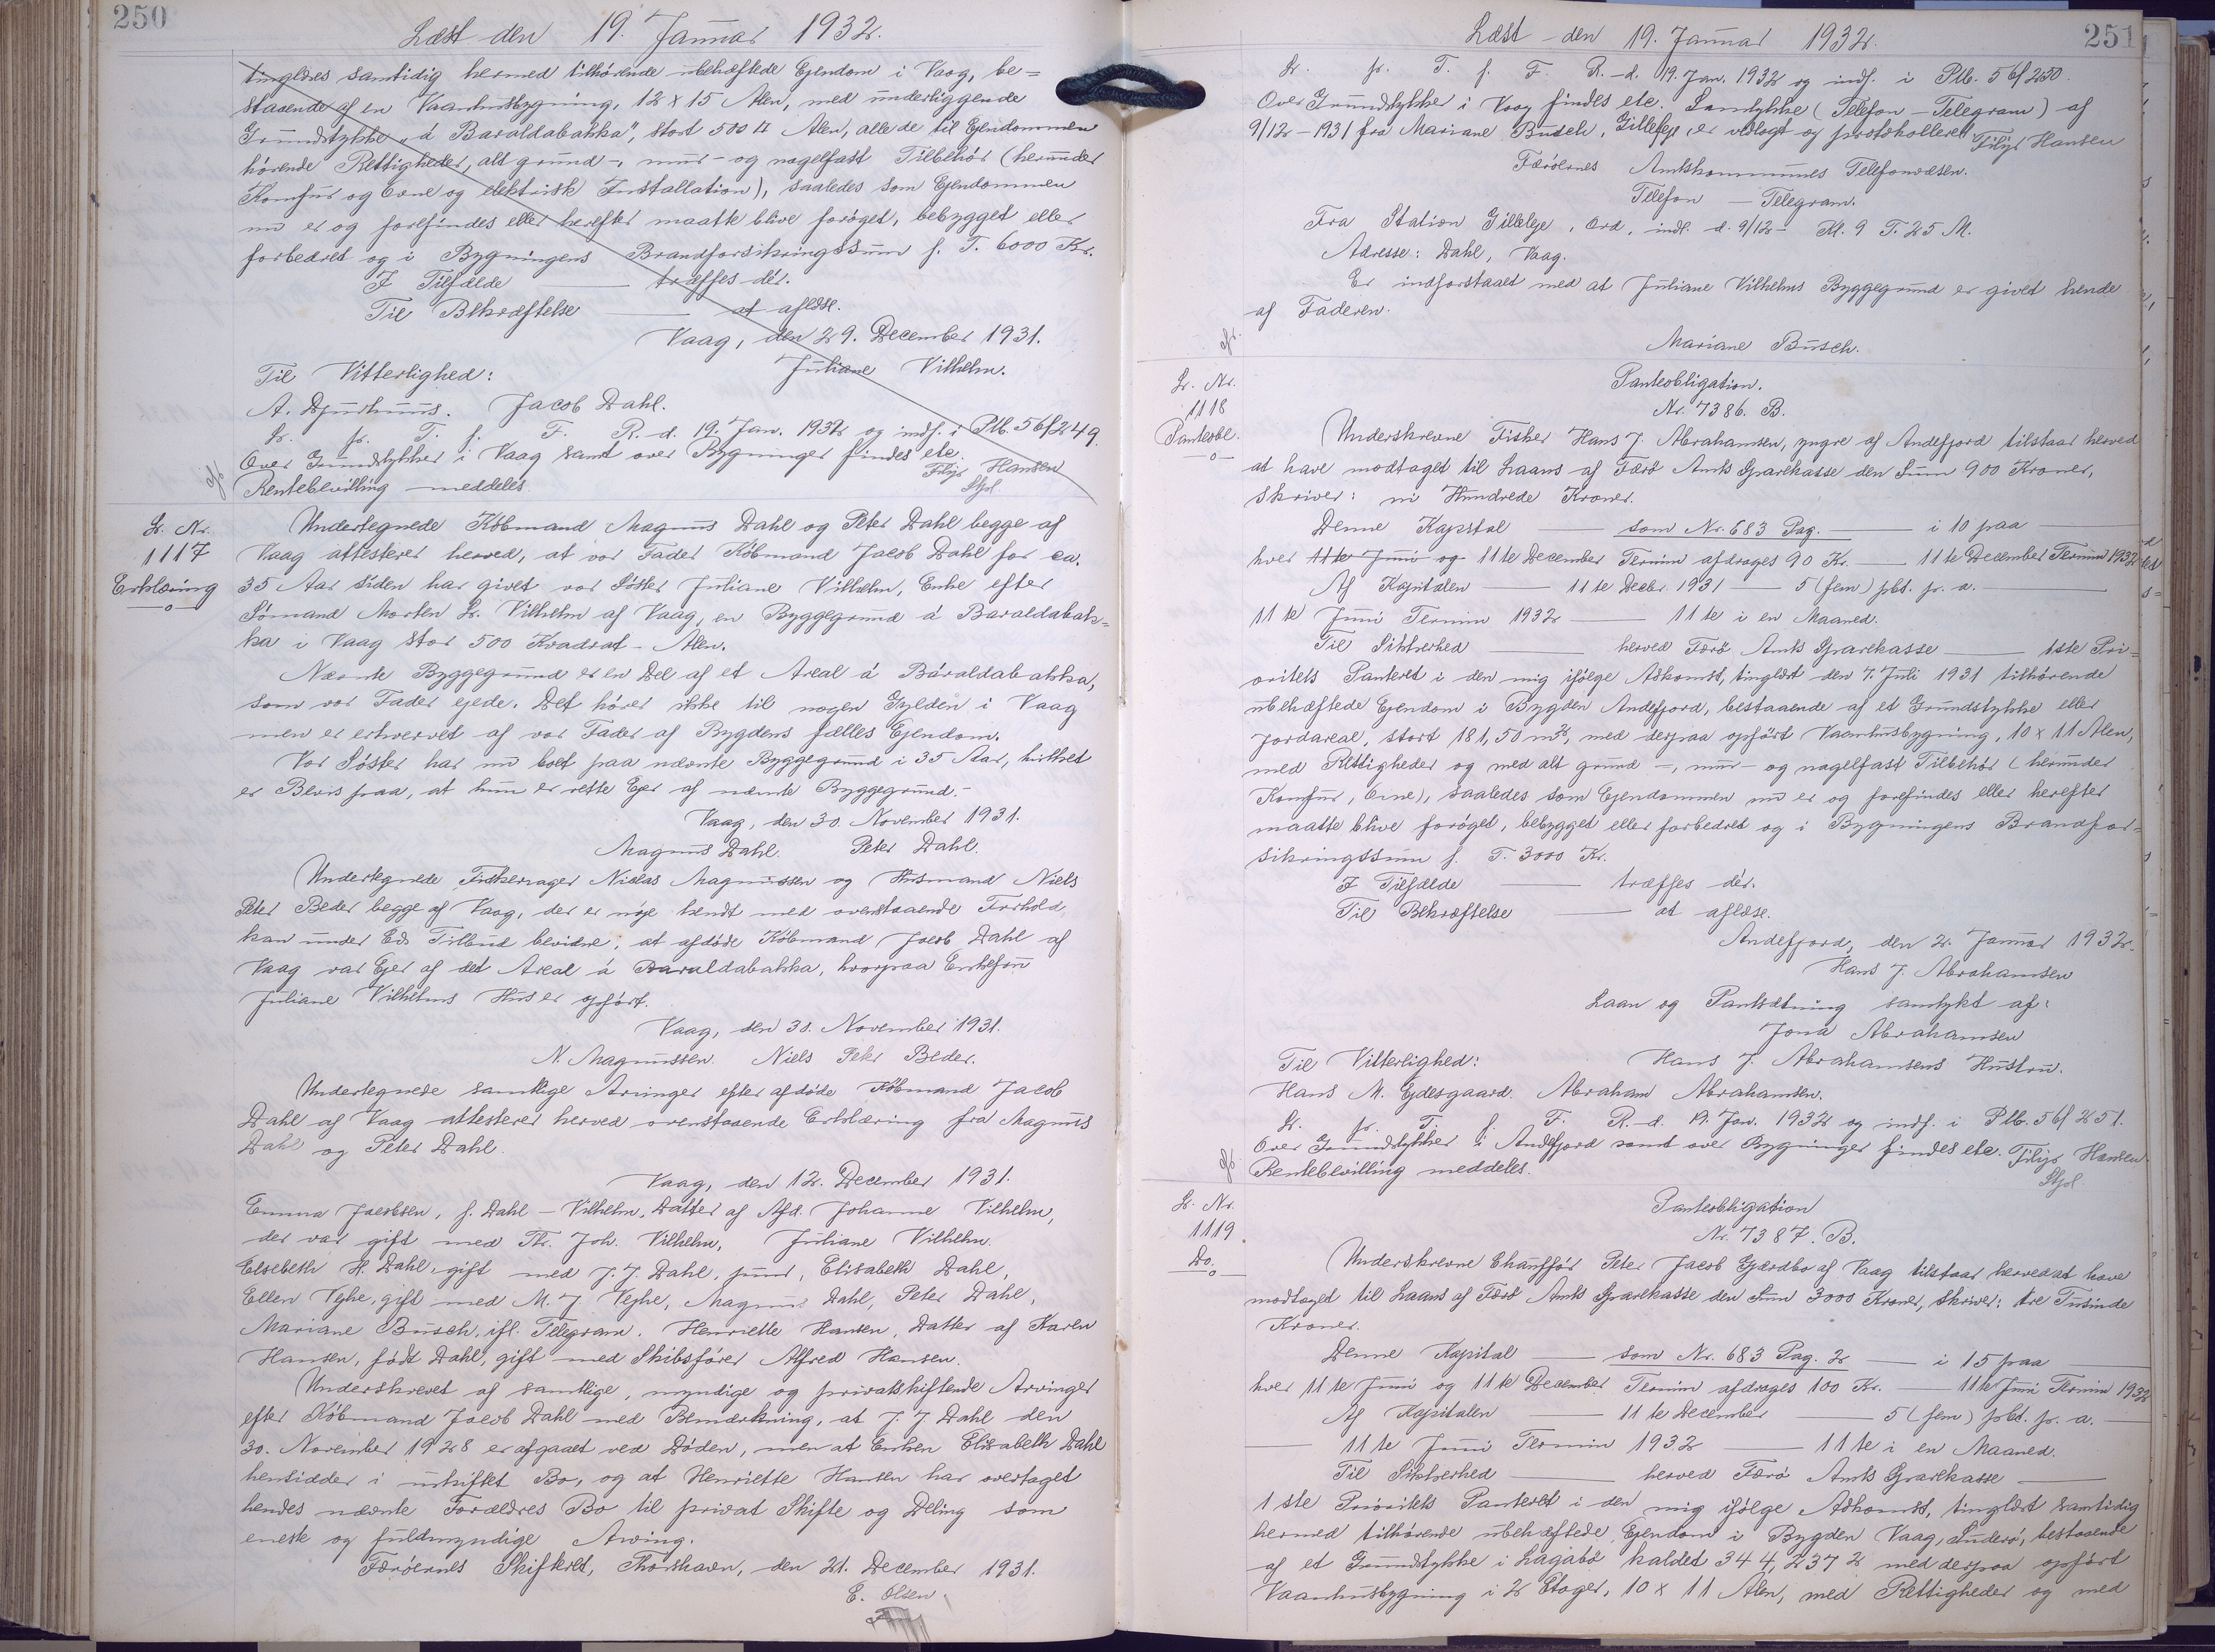 250
Læst den 19. Januar 1932.
tinglæses samtidig hermed tilhørende ubehæftede Ejendom i Vaag, be=
staaende af en Vaanhusbygning, 12 x 15 Alen, med underliggende
Grundstykke "á Baraldabakka", stort 500 □ Alen, alle de til Ejendommen
hørende Rettigheder, alt grund-, mur- og nagelfast Tilbehör (herunder
Komfur og Ovne og elektrisk Installation), saaledes som Ejendommen
nu er og forefindes eller herefter maatte blive foröget, bebygget eller
forbedret og i Bygningens Brandforsikringssum f. T. 6000 Kr.
I Tilfælde — træffes dér.
Til Bekræftelse — at aflæse.
Vaag, den 29. December 1931.
Juliane Vilhelm.
Til Vitterlighed:
A. Djurhuus. Jacob Dahl.
L. pr. T. f. F. R.-d. 19. Jan. 1932 og indf. i Ptb. 56/249.
Over Grundstykker i Vaag samt over Bygninger findes etc.
Rentebevilling meddeles. Filip Hansen
Lr. Nr.
1117
Erklæring
Undertegnede Købmand Magnus Dahl og Peter Dahl begge af
Vaag attesterer herved, at vor Fader Købmand Jacob Dahl for ca.
35 Aar siden har givet vor Søster Juliane Vilhelm, Enke efter
Sømand Morten Fr. Vilhelm af Vaag, en Byggegrund á Baraldabak=
ka i Vaag stor 500 Kvadrat-Alen.
Nævnte Byggegrund er en Del af et Areal á Báraldabakka,
som vor Fader ejede. Det hører ikke til nogen Gylden i Vaag
men er erhvervet af vor Fader af Bygdens fælles Ejendom.
Vor Søster har nu boet paa nævnte Byggegrund i 35 Aar, hvilket
er Bevis paa, at hun er rette Ejer af nævnte Byggegrund.-
Vaag, den 30. November 1931.
Magnus Dahl. Peter Dahl.
Undertegnede Fiskevrager Niclas Magnussen og Husmand Niels
Peter Beder begge af Vaag, der er nøje kendt med ovenstaaende Forhold,
kan under Eds Tilbud bevidne, at afdøde Købmand Jacob Dahl af
Vaag var Ejer af det Areal á Baraldabakka, hvorpaa Enkefru
Juliane Vilhelms Hus er opført.
Vaag, den 30. November 1931.
N. Magnussen. Niels Peter Beder.
Undertegnede samtlige Arvinger efter afdøde Købmand Jacob
Dahl af Vaag attesterer herved ovenstaaende Erklæring fra Magnus
Dahl og Peter Dahl.
Vaag, den 12. December 1931.
Emma Jacobsen, f. Dahl - Vilhelm, Datter af Afd. Johanne Vilhelm,
der var gift med Th. Joh. Vilhelm, Juliane Vilhelm.
Elsebeth H. Dahl, gift med J. J. Dahl, jun., Elisabeth Dahl,
Ellen Vejhe, gift med M. J. Vejhe, Magnus Dahl, Peter Dahl,
Mariane Busch, ifl. Telegram. Henriette Hansen, Datter af Karen
Hansen, født Dahl, gift med Skibsfører Alfred Hansen.
Underskrevet af samtlige, myndige og privatskiftende Arvinger
efter Købmand Jacob Dahl med Bemærkning, at J. J. Dahl den
30. November 1928 er afgaaet ved Døden, men at Enken Elisabeth Dahl
hensidder i uskiftet Bo, og at Henriette Hansen har overtaget
hendes nævnte Forældres Bo til privat Skifte og Deling som
eneste og fuldmyndige Arving.
Færøernes Skifteret, Thorshavn, den 21. December 1931.
E. Olsen
251
Læst den 19. Januar 1932.
L. pr. T. f. F. R.-d. 19. Jan. 1932 og indf. i Ptb. 56/250.
Over Grundstykker i Vaag findes etc. Samtykke (Telefon-Telegram) af
9/12-1931 fra Mariane Busch, Gilleleje, er vedlagt og protokolleret. Filip Hansen
Færöernes Amtskommunes Telefonvæsen.
Telefon - Telegram.
Fra Station Gilleleje, Ord, indl. d. 9/12- Kl. 9 T. 25 M.
Adresse: Dahl, Vaag.
Er indforstaaet med at Juliane Vilhelms Byggegrund er givet hende
af Faderen.
Mariane Busch.
Lr. Nr.
1118
Panteobl.
Panteobligation.
Nr. 7386. B.
Underskrevne Fisker Hans J. Abrahamsen, yngre af Andefjord tilstaar herved
at have modtaget til Laans af Færö Amts Sparekasse den Sum 900 Kroner,
skriver: ni Hundrede Kroner.
Denne Kapital — som Nr. 683 Pag. — i 10 paa
hver 11te Juni og 11te December Termin afdrages 90 Kr. — 11te December Termin 1932
Af Kapitalen — 11te Decbr. 1931 — 5 (fem) pCt. p. a. —
11te Juni Termin 1932 — 11te i en Maaned.
Til Sikkerhed — herved Færö Amts Sparekasse — 1ste Pri=
oritets Panteret i den mig ifølge Adkomst, tinglæst den 7. Juli 1931 tilhørende
ubehæftede Ejendom i Bygden Andefjord, bestaaende af et Grundstykke eller
Jordareal, stort 181,50 m², med derpaa opført Vaanhusbygning, 10 x 11 Alen,
med Rettigheder og med alt grund-, mur- og nagelfast Tilbehör (herunder
Komfur, Ovne), saaledes som Ejendommen nu er og forefindes eller herefter
maatte blive foröget, bebygget eller forbedret og i Bygningens Brandfor=
sikringssum f. T. 3000 Kr.
I Tilfælde — træffes dér.
Til Bekræftelse — at aflæse.
Andefjord, den 2. Januar 1932.
Hans J. Abrahamsen
Laan og Pantsætning samtykt af:
Jona Abrahamsen
Til Vitterlighed: Hans J. Abrahamsens Hustru.
Hans M. Ejdesgaard. Abraham Abrahamsen.
L. pr. T. f. F. R.-d. 19. Jan. 1932 og indf. i Ptb. 56/251.
Over Grundstykker i Andefjord samt over Bygninger findes etc. Filip Hansen
Rentebevilling meddeles.
Lr. Nr.
1119.
Do.
Panteobligation
Nr. 7387. B.
Underskrevne Chauffør Peter Jacob Gjærdbo af Vaag tilstaar herved at have
modtaget til Laans af Færö Amts Sparekasse den Sum 3000 Kroner, skriver: tre Tusinde
Kroner.
Denne Kapital — som Nr. 683 Pag. 2 — i 15 paa —
hver 11te Juni og 11te December Termin afdrages 100 Kr. — 11te Juni Termin 1932
Af Kapitalen — 11te December — 5 (fem) pCt. p. a. —
— 11te Juni Termin 1932 — 11te i en Maaned.
Til Sikkerhed — herved Færö Amts Sparekasse —
1ste Prioritets Panteret i den mig ifølge Adkomst, tinglæst samtidig
hermed tilhørende ubehæftede Ejendom i Bygden Vaag, Suderö, bestaaende
af et Grundstykke i Lagabø kaldet 344, 237 2 med derpaa opført
Vaanhusbygning i 2 Etager, 10 x 11 Alen, med Rettigheder og med